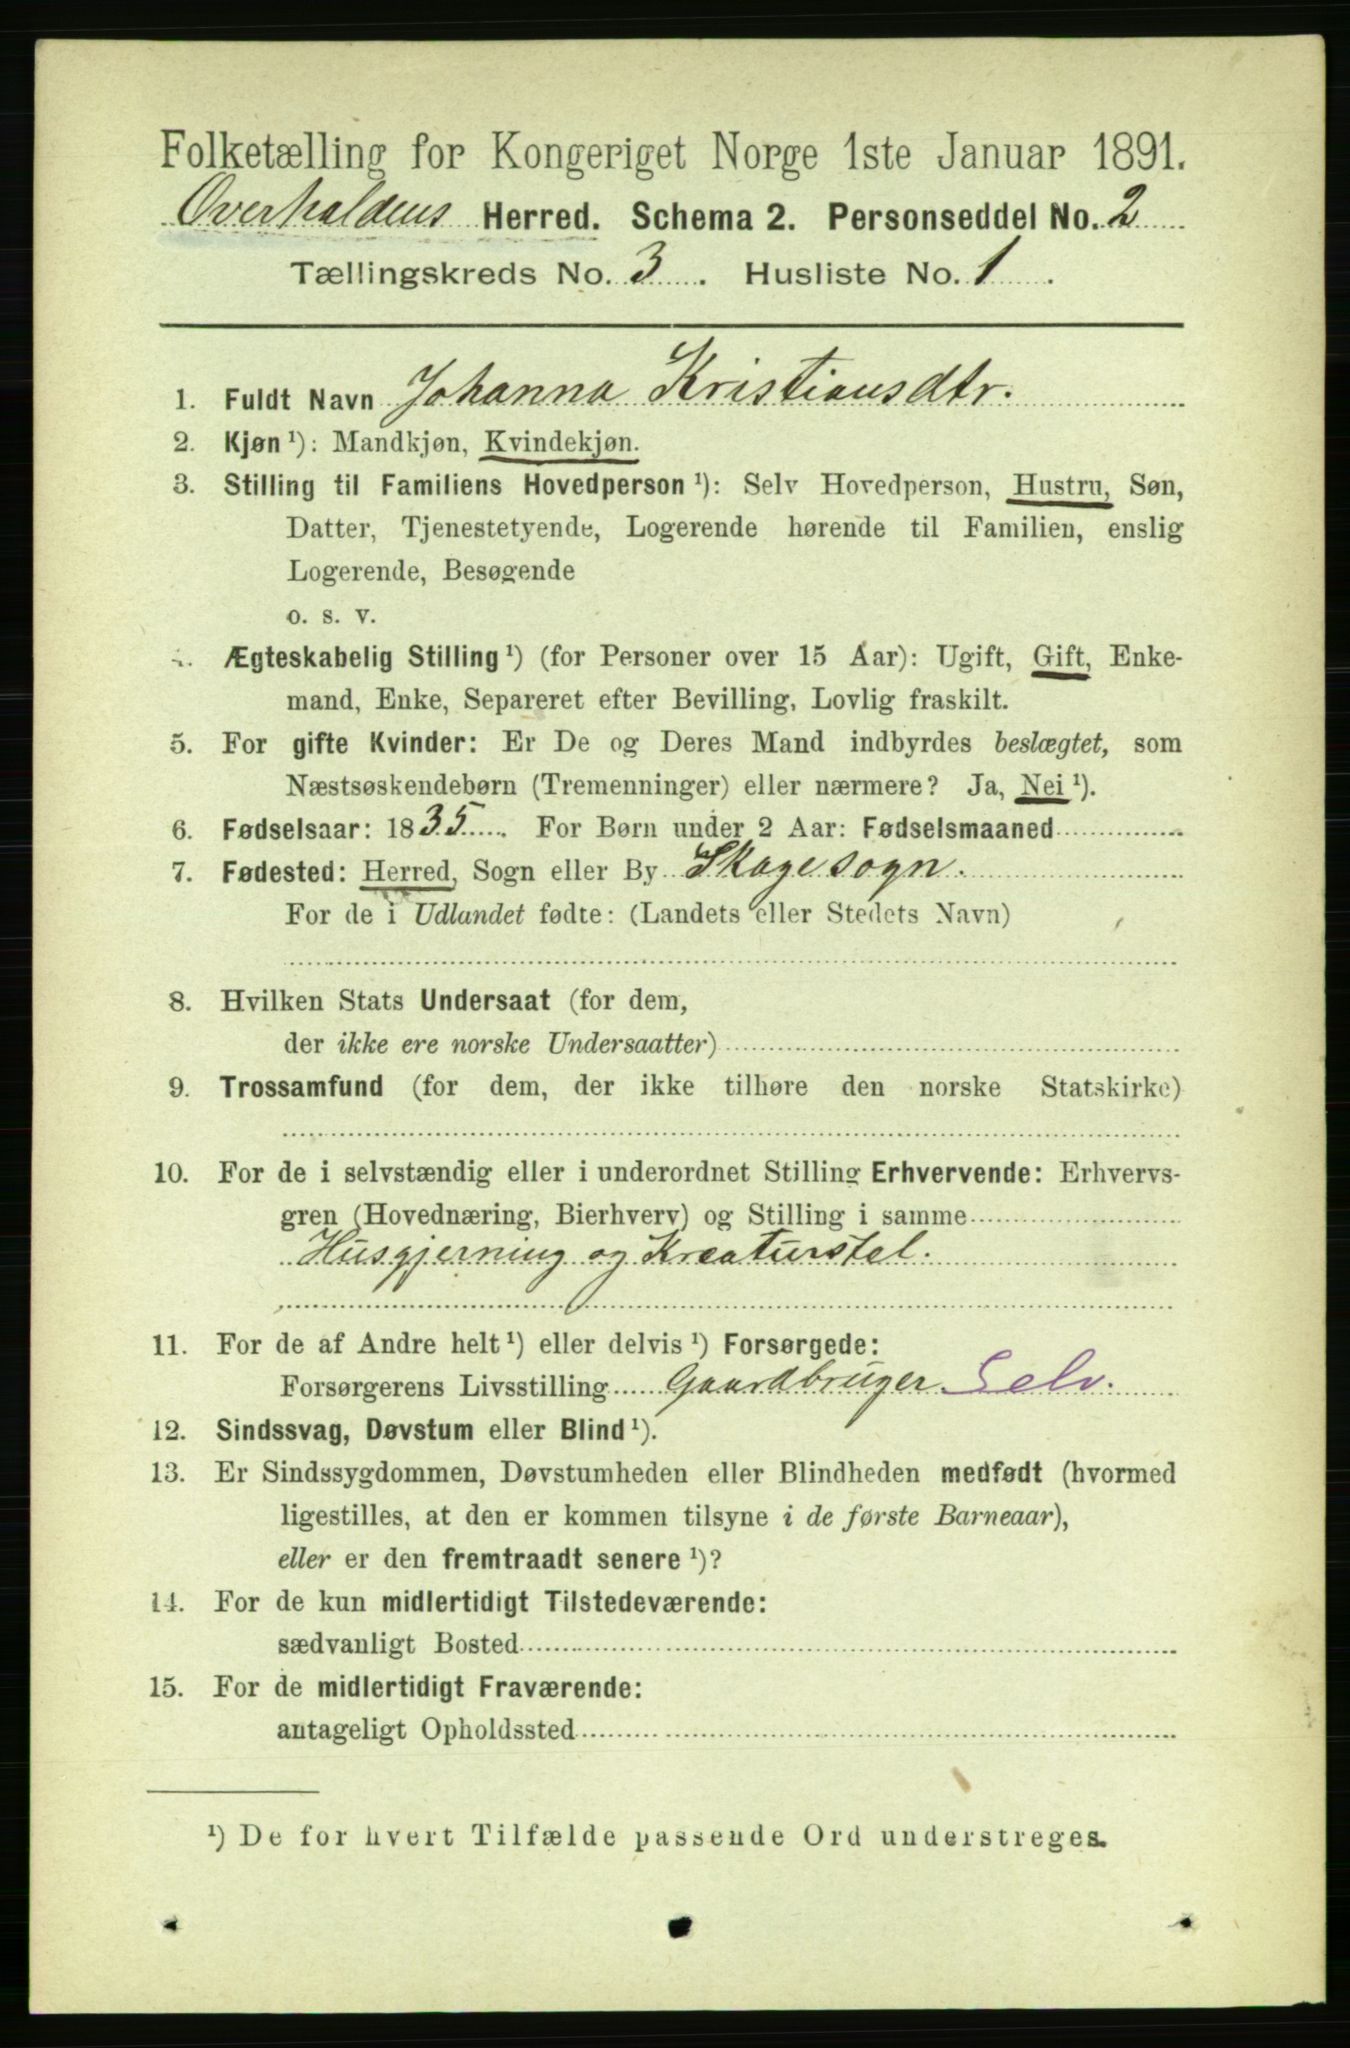 Folketælling for Kongeriget Norge 1ste Januar 1891.
Overhaldens Herred. Schema 2. Personseddel No. 2
Tællingskreds No. 3. Husliste No. 1.
1. Fuldt Navn Johanna Kristiansdtr.
2. Kjøn ¹): Mandkjøn, Kvindekjøn.
3. Stilling til Familiens Hovedperson ¹): Selv Hovedperson, Hustru, Søn,
Datter, Tjenestetyende, Logerende hørende til Familien, enslig
Logerende, Besøgende
o. s. v.
4. Ægteskabelig Stilling ¹) (for Personer over 15 Aar): Ugift, Gift, Enke-
mand, Enke, Separeret efter Bevilling, Lovlig fraskilt.
5. For gifte Kvinder: Er De og Deres Mand indbyrdes beslægtet, som
Næstsøskendebørn (Tremenninger) eller nærmere? Ja, Nei ¹).
6. Fødselsaar: 1835. For Børn under 2 Aar: Fødselsmaaned
7. Fødested: Herred, Sogn eller By Skage sogn.
For de i Udlandet fødte: (Landets eller Stedets Navn)
8. Hvilken Stats Undersaat (for dem,
der ikke ere norske Undersaatter)
9. Trossamfund (for dem, der ikke tilhøre den norske Statskirke)
10. For de i selvstændig eller i underordnet Stilling Erhvervende: Erhvervs-
gren (Hovednæring, Bierhverv) og Stilling i samme
Husgjerning og Kreaturstel.
11. For de af Andre helt ¹) eller delvis ¹) Forsørgede:
Forsørgerens Livsstilling Gaardbruger Selv.
12. Sindssvag, Døvstum eller Blind ¹).
13. Er Sindssygdommen, Døvstumheden eller Blindheden medfødt (hvormed
ligestilles, at den er kommen tilsyne i de første Barneaar),
eller er den fremtraadt senere ¹)?
14. For de kun midlertidigt Tilstedeværende:
sædvanligt Bosted
15. For de midlertidigt Fraværende:
antageligt Opholdssted
¹) De for hvert Tilfælde passende Ord understreges.